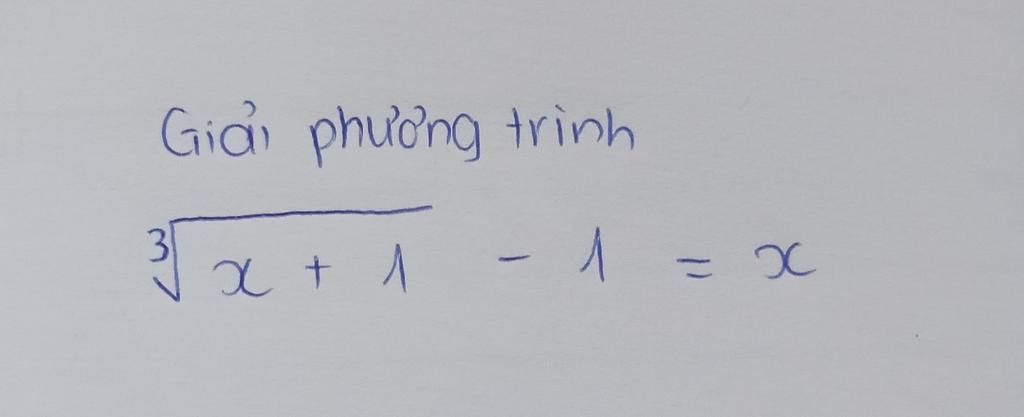 Giải phương trình
∛(x + 1) - 1 = x